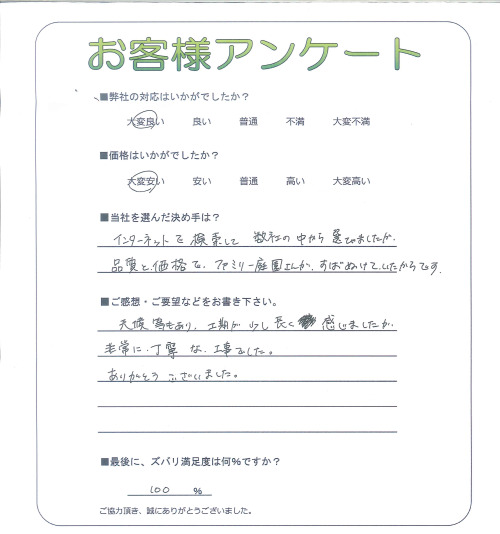 お客様アンケート
■弊社の対応はいかがでしたか？
大変良い 良い 普通 不満 大変不満
■価格はいかがでしたか？
大変安い 安い 普通 高い 大変高い
■当社を選んだ決め手は？
インターネットで検索して 数社の中から選びましたが、
品質と価格で、ファミリー庭園さんが、ずばぬけていたからです。
■ご感想・ご要望などをお書き下さい。
天候等もあり、工期が少し長く 感じましたが、
非常に丁寧な工事でした。
ありがとうございました。
■最後に、ズバリ満足度は何%ですか？
100 %
ご協力頂き、誠にありがとうございました。